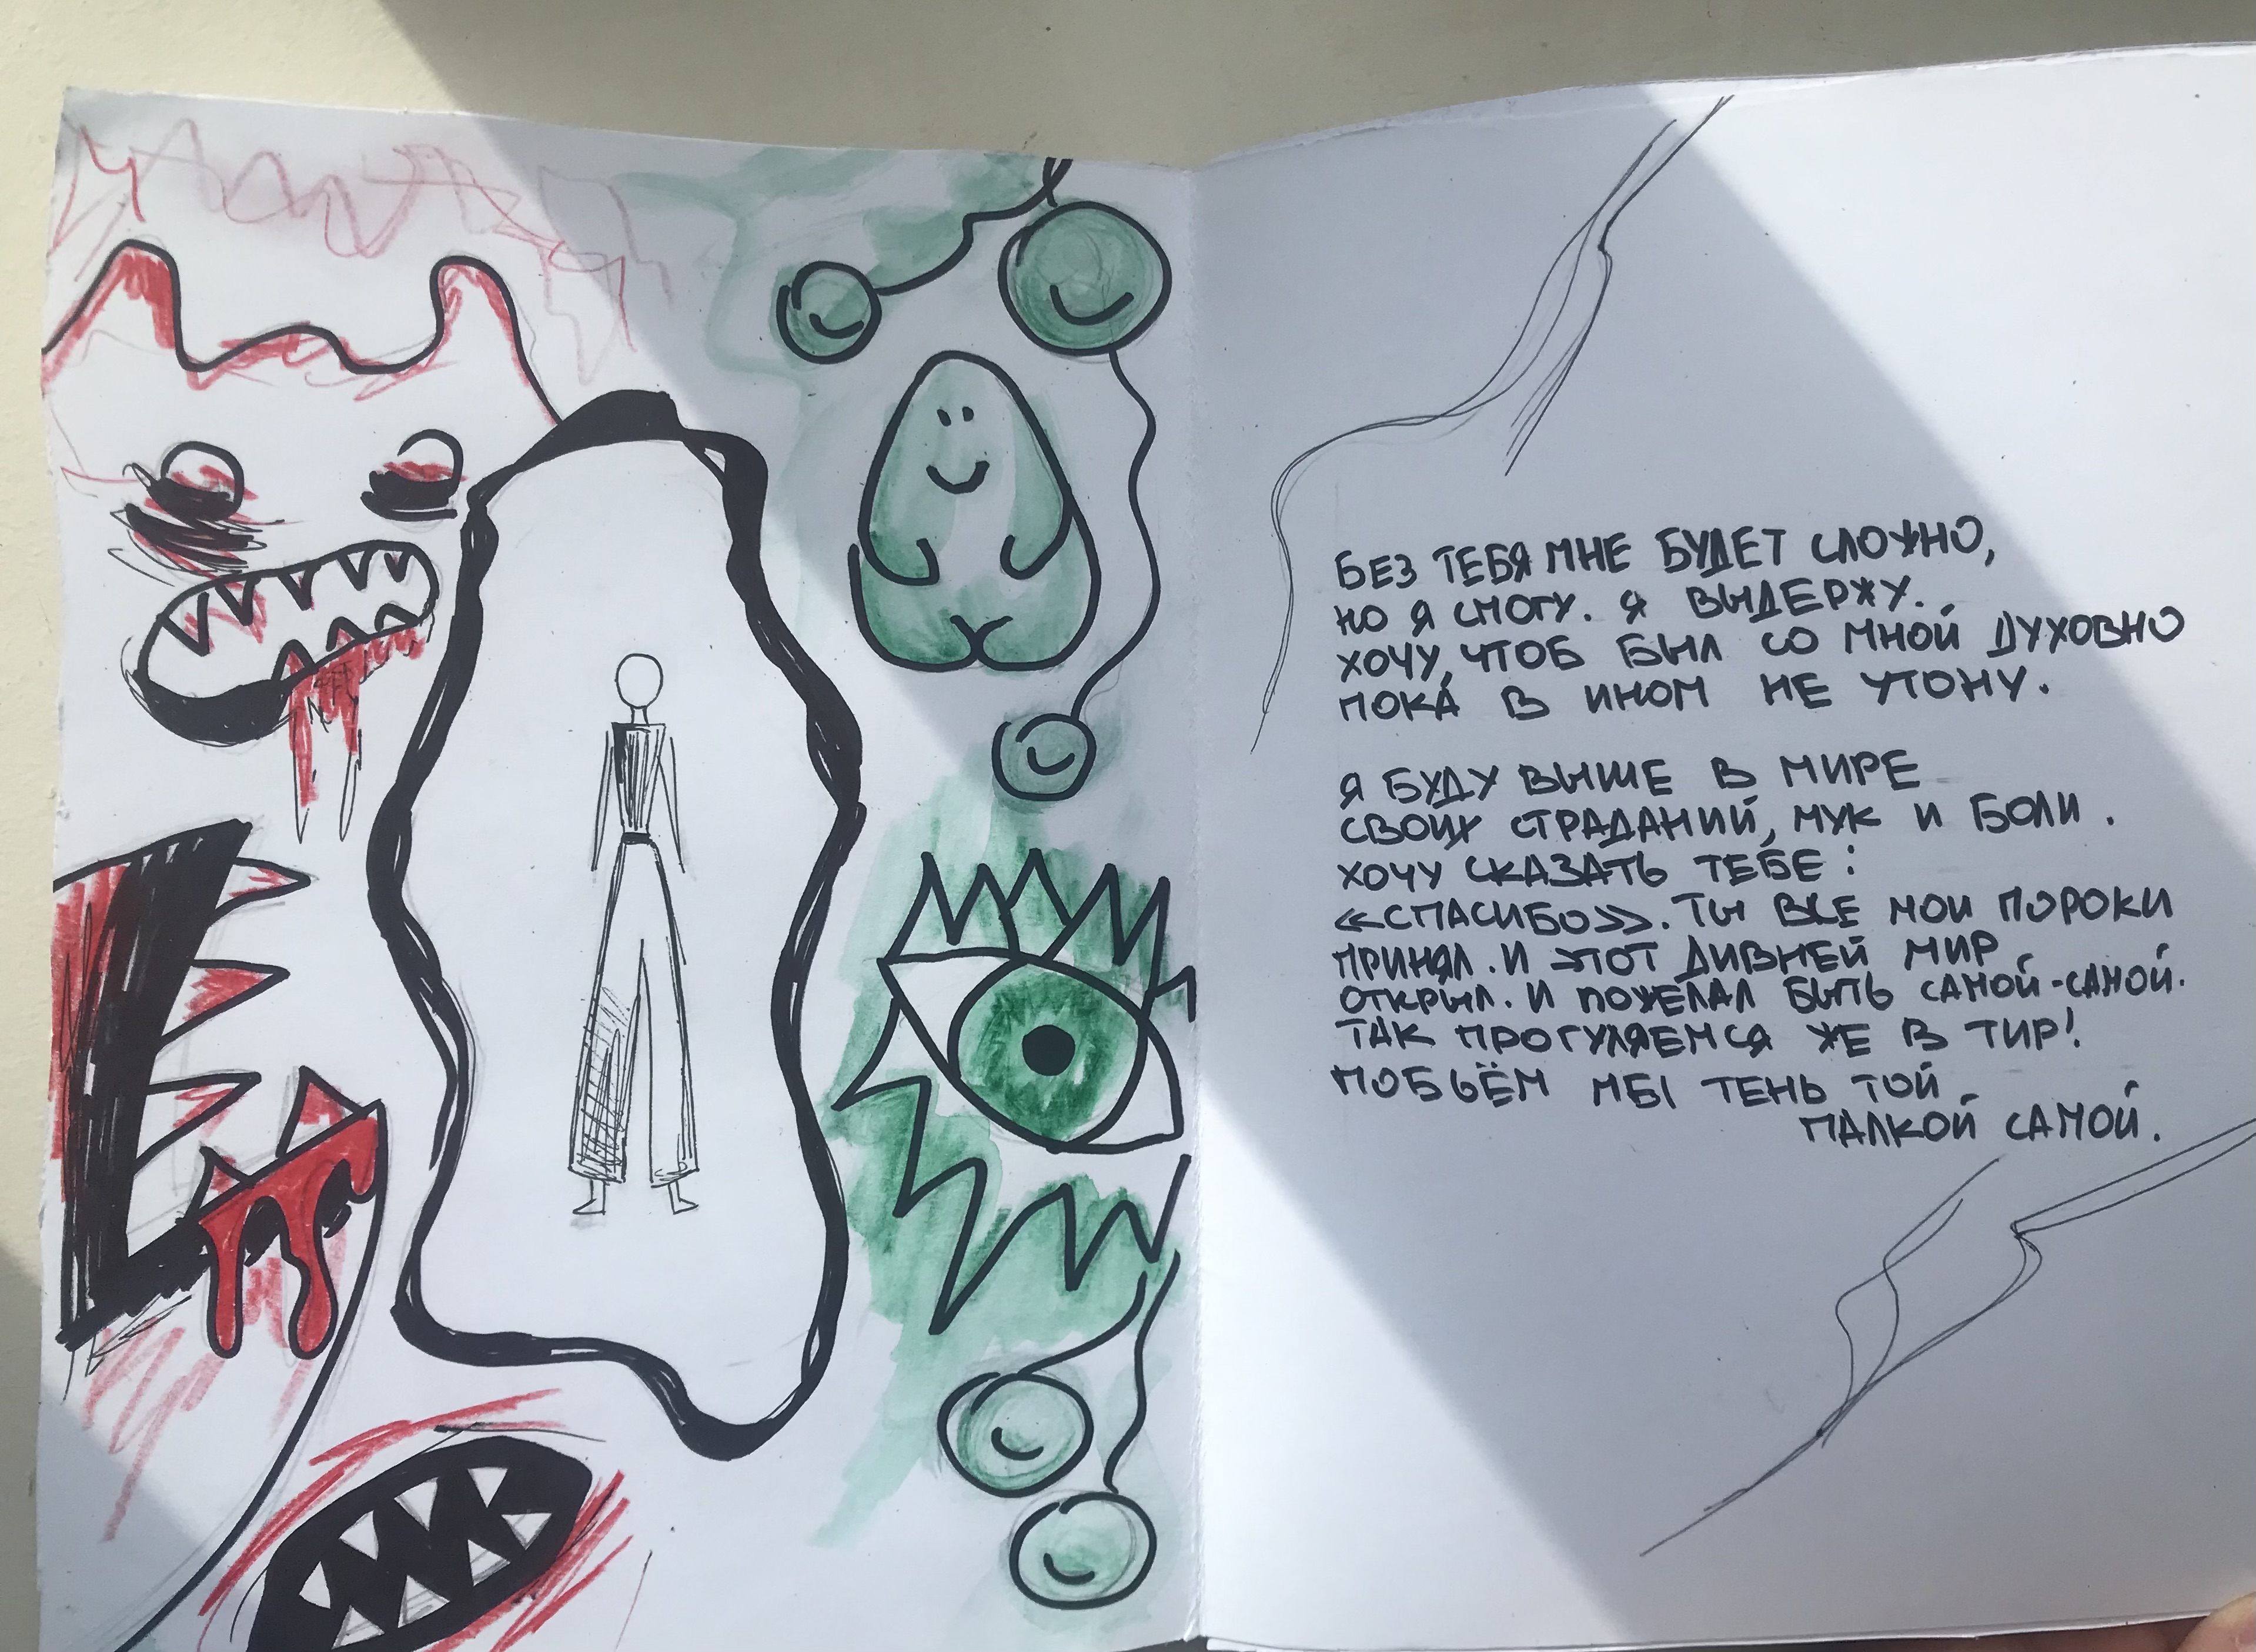 БЕЗ ТЕБЯ МНЕ БУДЕТ СЛОЖНО,
НО Я СМОГУ. Я ВЫДЕРЖУ.
ХОЧУ, ЧТОБ БЫЛ СО МНОЙ ДУХОВНО
ПОКА В ИНОМ НЕ УТОНУ.
Я БУДУ ВЫШЕ В МИРЕ
СВОИХ СТРАДАНИЙ, МУК И БОЛИ.
ХОЧУ СКАЗАТЬ ТЕБЕ:
«СПАСИБО». ТЫ ВСЕ МОИ ПОРОКИ
ПРИНЯЛ. И ЭТОТ ДИВНЕЙ МИР
ОТКРЫЛ. И ПОЖЕЛАЛ БЫТЬ САМОЙ-САМОЙ.
ТАК ПРОГУЛЯЕМСЯ ЖЕ В ТИР!
ПОБЬЁМ МЫ ТЕНЬ ТОЙ
ПАЛКОЙ САМОЙ.